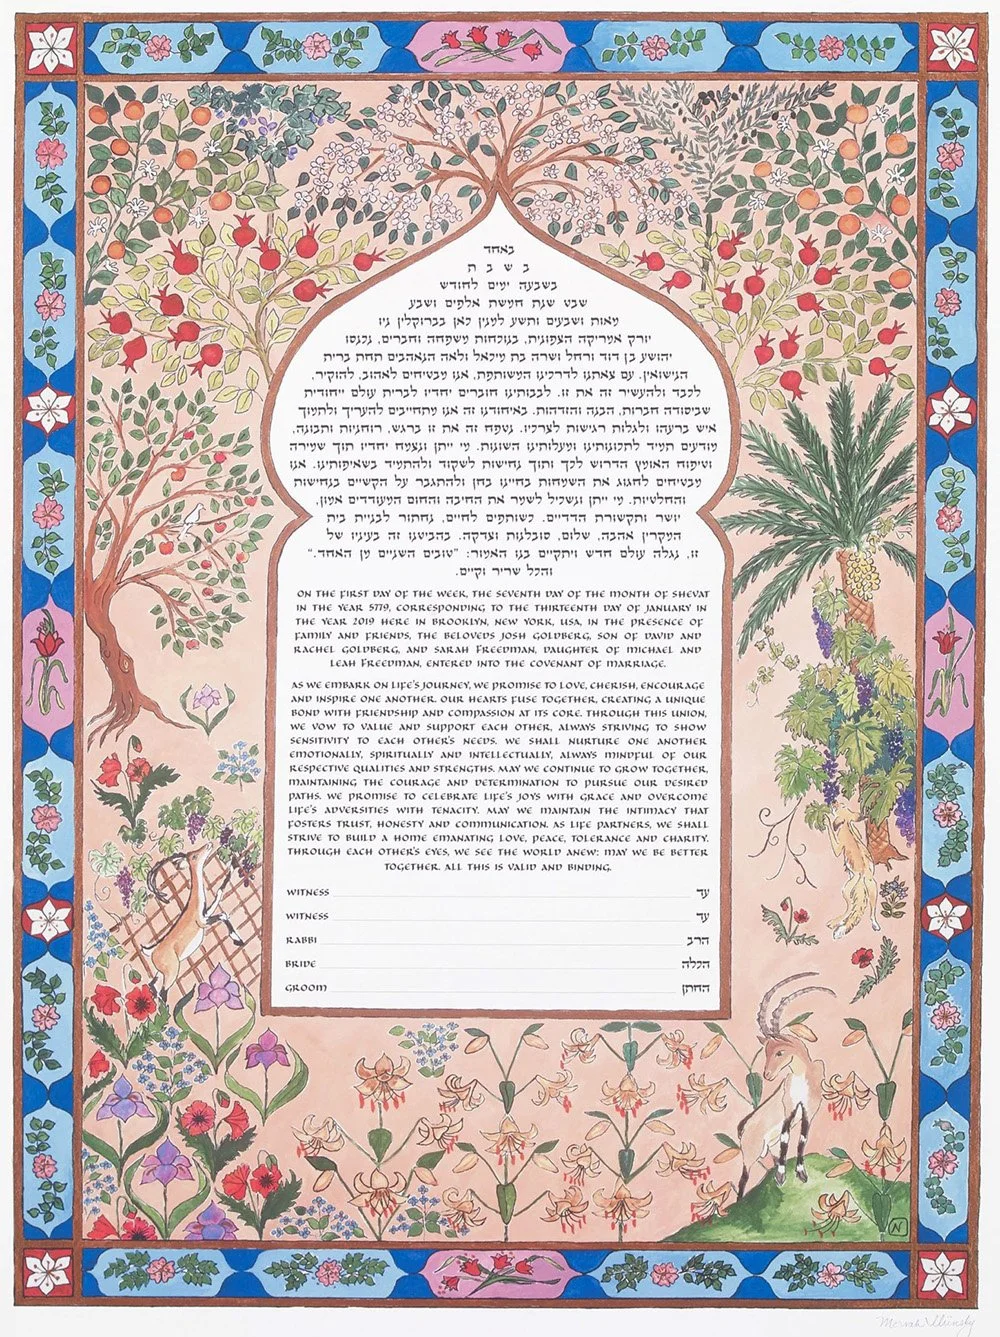 באחד
בשבת
בשבעה ימים לחודש
שבט שנת חמשת אלפים ושבע
מאות ושבעים ותשע למנין כאן בברוקלין ניו
יורק אמריקה הצפונית, בנוכחות משפחה וחברים, נכנסו
יהושע בן דוד ורחל ושרה בת מיכאל ולאה הנאהבים תחת ברית
הנישואין. עם צאתנו לדרכינו המשותפת, אנו מבטיחים לאהוב, להוקיר,
לכבד ולהעשיר זה את זו. לבבותינו חוברים יחדיו לברית עולם ייחודית
שביסודה חברות, הבנה והזדהות. באיחודנו זה אנו מתחייבים להעריך ולתמוך
איש ברעהו ולגלות רגישות לצרכיו. נטפח זה את זו ברגש, רוחניות ותבונה,
מודעים תמיד לתכונותינו ומעלותינו השונות. מי ייתן ונצמח יחדיו תוך שמירה
וטיפוח האומץ הדרוש לכך ותוך נחישות לשקוד ולהתמיד בשאיפותינו. אנו
מבטיחים לחגוג את השמחות בחיינו בחן ולהתגבר על הקשיים בנחישות
והחלטיות. מי ייתן ונשכיל לשמר את החיבה והחום המעודדים אמון,
יושר ותקשורת הדדיים. כשותפים לחיים, נחתור לבניית בית
המקרין אהבה, שלום, סובלנות וצדקה. בהביטנו זה בעיניו של
זו, נגלה עולם חדש ויתקיים בנו האמור: "טובים השניים מן האחד."
והכל שריר וקיים.
ON THE FIRST DAY OF THE WEEK, THE SEVENTH DAY OF THE MONTH OF SHEVAT
IN THE YEAR 5779, CORRESPONDING TO THE THIRTEENTH DAY OF JANUARY IN
THE YEAR 2019 HERE IN BROOKLYN, NEW YORK, USA, IN THE PRESENCE OF
FAMILY AND FRIENDS, THE BELOVEDS JOSH GOLDBERG, SON OF DAVID AND
RACHEL GOLDBERG, AND SARAH FREEDMAN, DAUGHTER OF MICHAEL AND
LEAH FREEDMAN, ENTERED INTO THE COVENANT OF MARRIAGE.
AS WE EMBARK ON LIFE'S JOURNEY, WE PROMISE TO LOVE, CHERISH, ENCOURAGE
AND INSPIRE ONE ANOTHER. OUR HEARTS FUSE TOGETHER, CREATING A UNIQUE
BOND WITH FRIENDSHIP AND COMPASSION AT ITS CORE. THROUGH THIS UNION,
WE VOW TO VALUE AND SUPPORT EACH OTHER, ALWAYS STRIVING TO SHOW
SENSITIVITY TO EACH OTHER'S NEEDS. WE SHALL NURTURE ONE ANOTHER
EMOTIONALLY, SPIRITUALLY AND INTELLECTUALLY, ALWAYS MINDFUL OF OUR
RESPECTIVE QUALITIES AND STRENGTHS. MAY WE CONTINUE TO GROW TOGETHER,
MAINTAINING THE COURAGE AND DETERMINATION TO PURSUE OUR DESIRED
PATHS. WE PROMISE TO CELEBRATE LIFE'S JOYS WITH GRACE AND OVERCOME
LIFE'S ADVERSITIES WITH TENACITY. MAY WE MAINTAIN THE INTIMACY THAT
FOSTERS TRUST, HONESTY AND COMMUNICATION. AS LIFE PARTNERS, WE SHALL
STRIVE TO BUILD A HOME EMANATING LOVE, PEACE, TOLERANCE AND CHARITY.
THROUGH EACH OTHER'S EYES, WE SEE THE WORLD ANEW: MAY WE BE BETTER
TOGETHER. ALL THIS IS VALID AND BINDING.
WITNESS עד
WITNESS עד
RABBI הרב
BRIDE הכלה
GROOM החתן